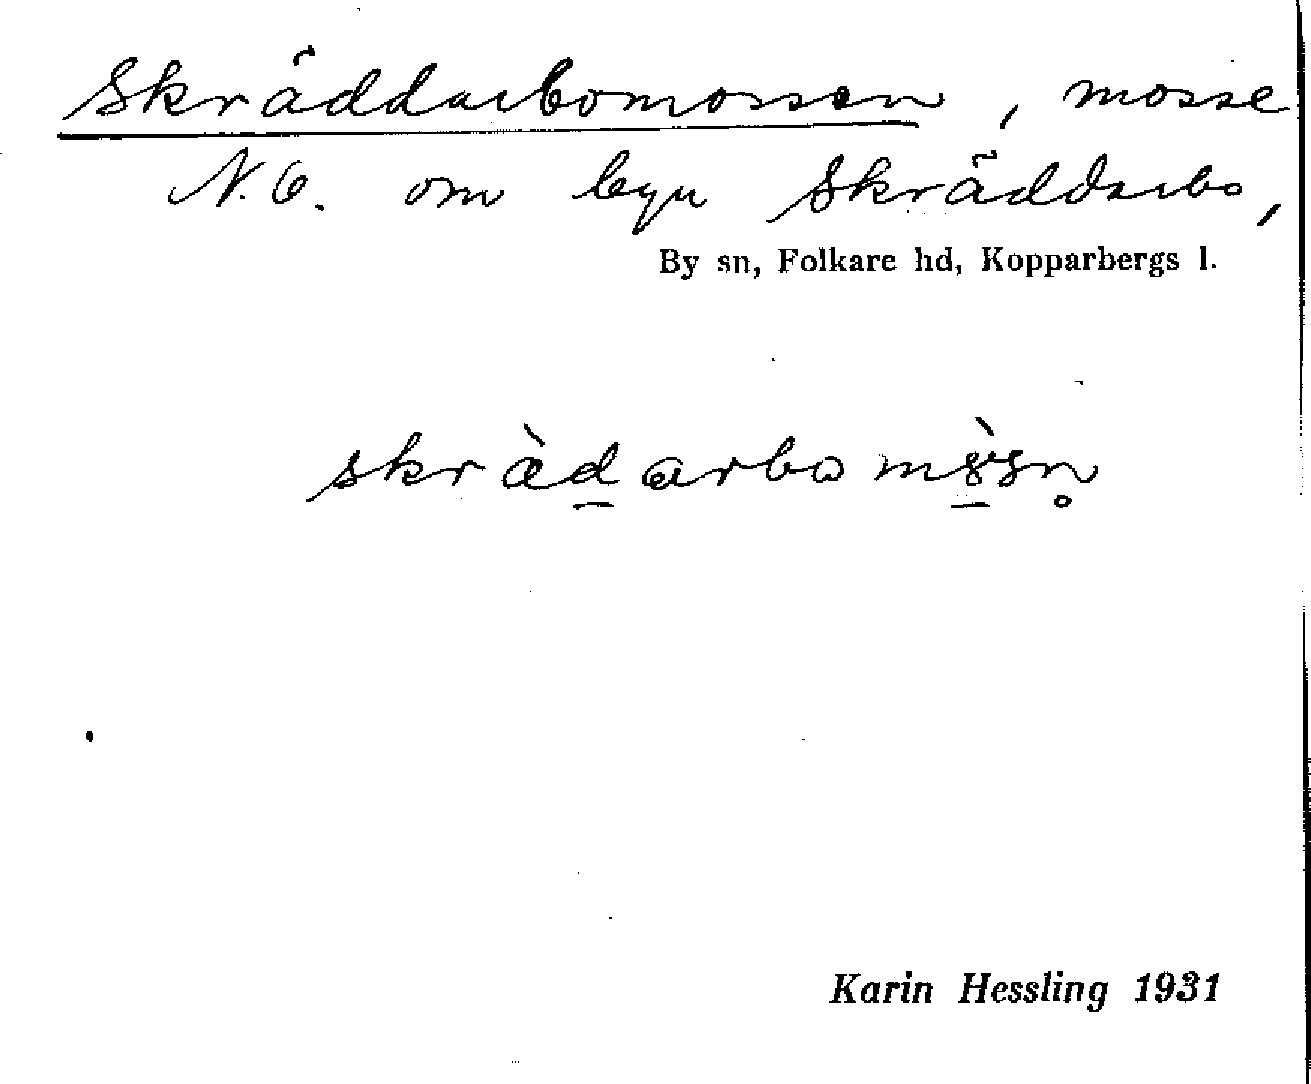 Skräddarbomossen, mosse
N.O. om byn Skräddarbo,
By sn, Folkare hd, Kopparbergs l.
Karin Hessling 1931